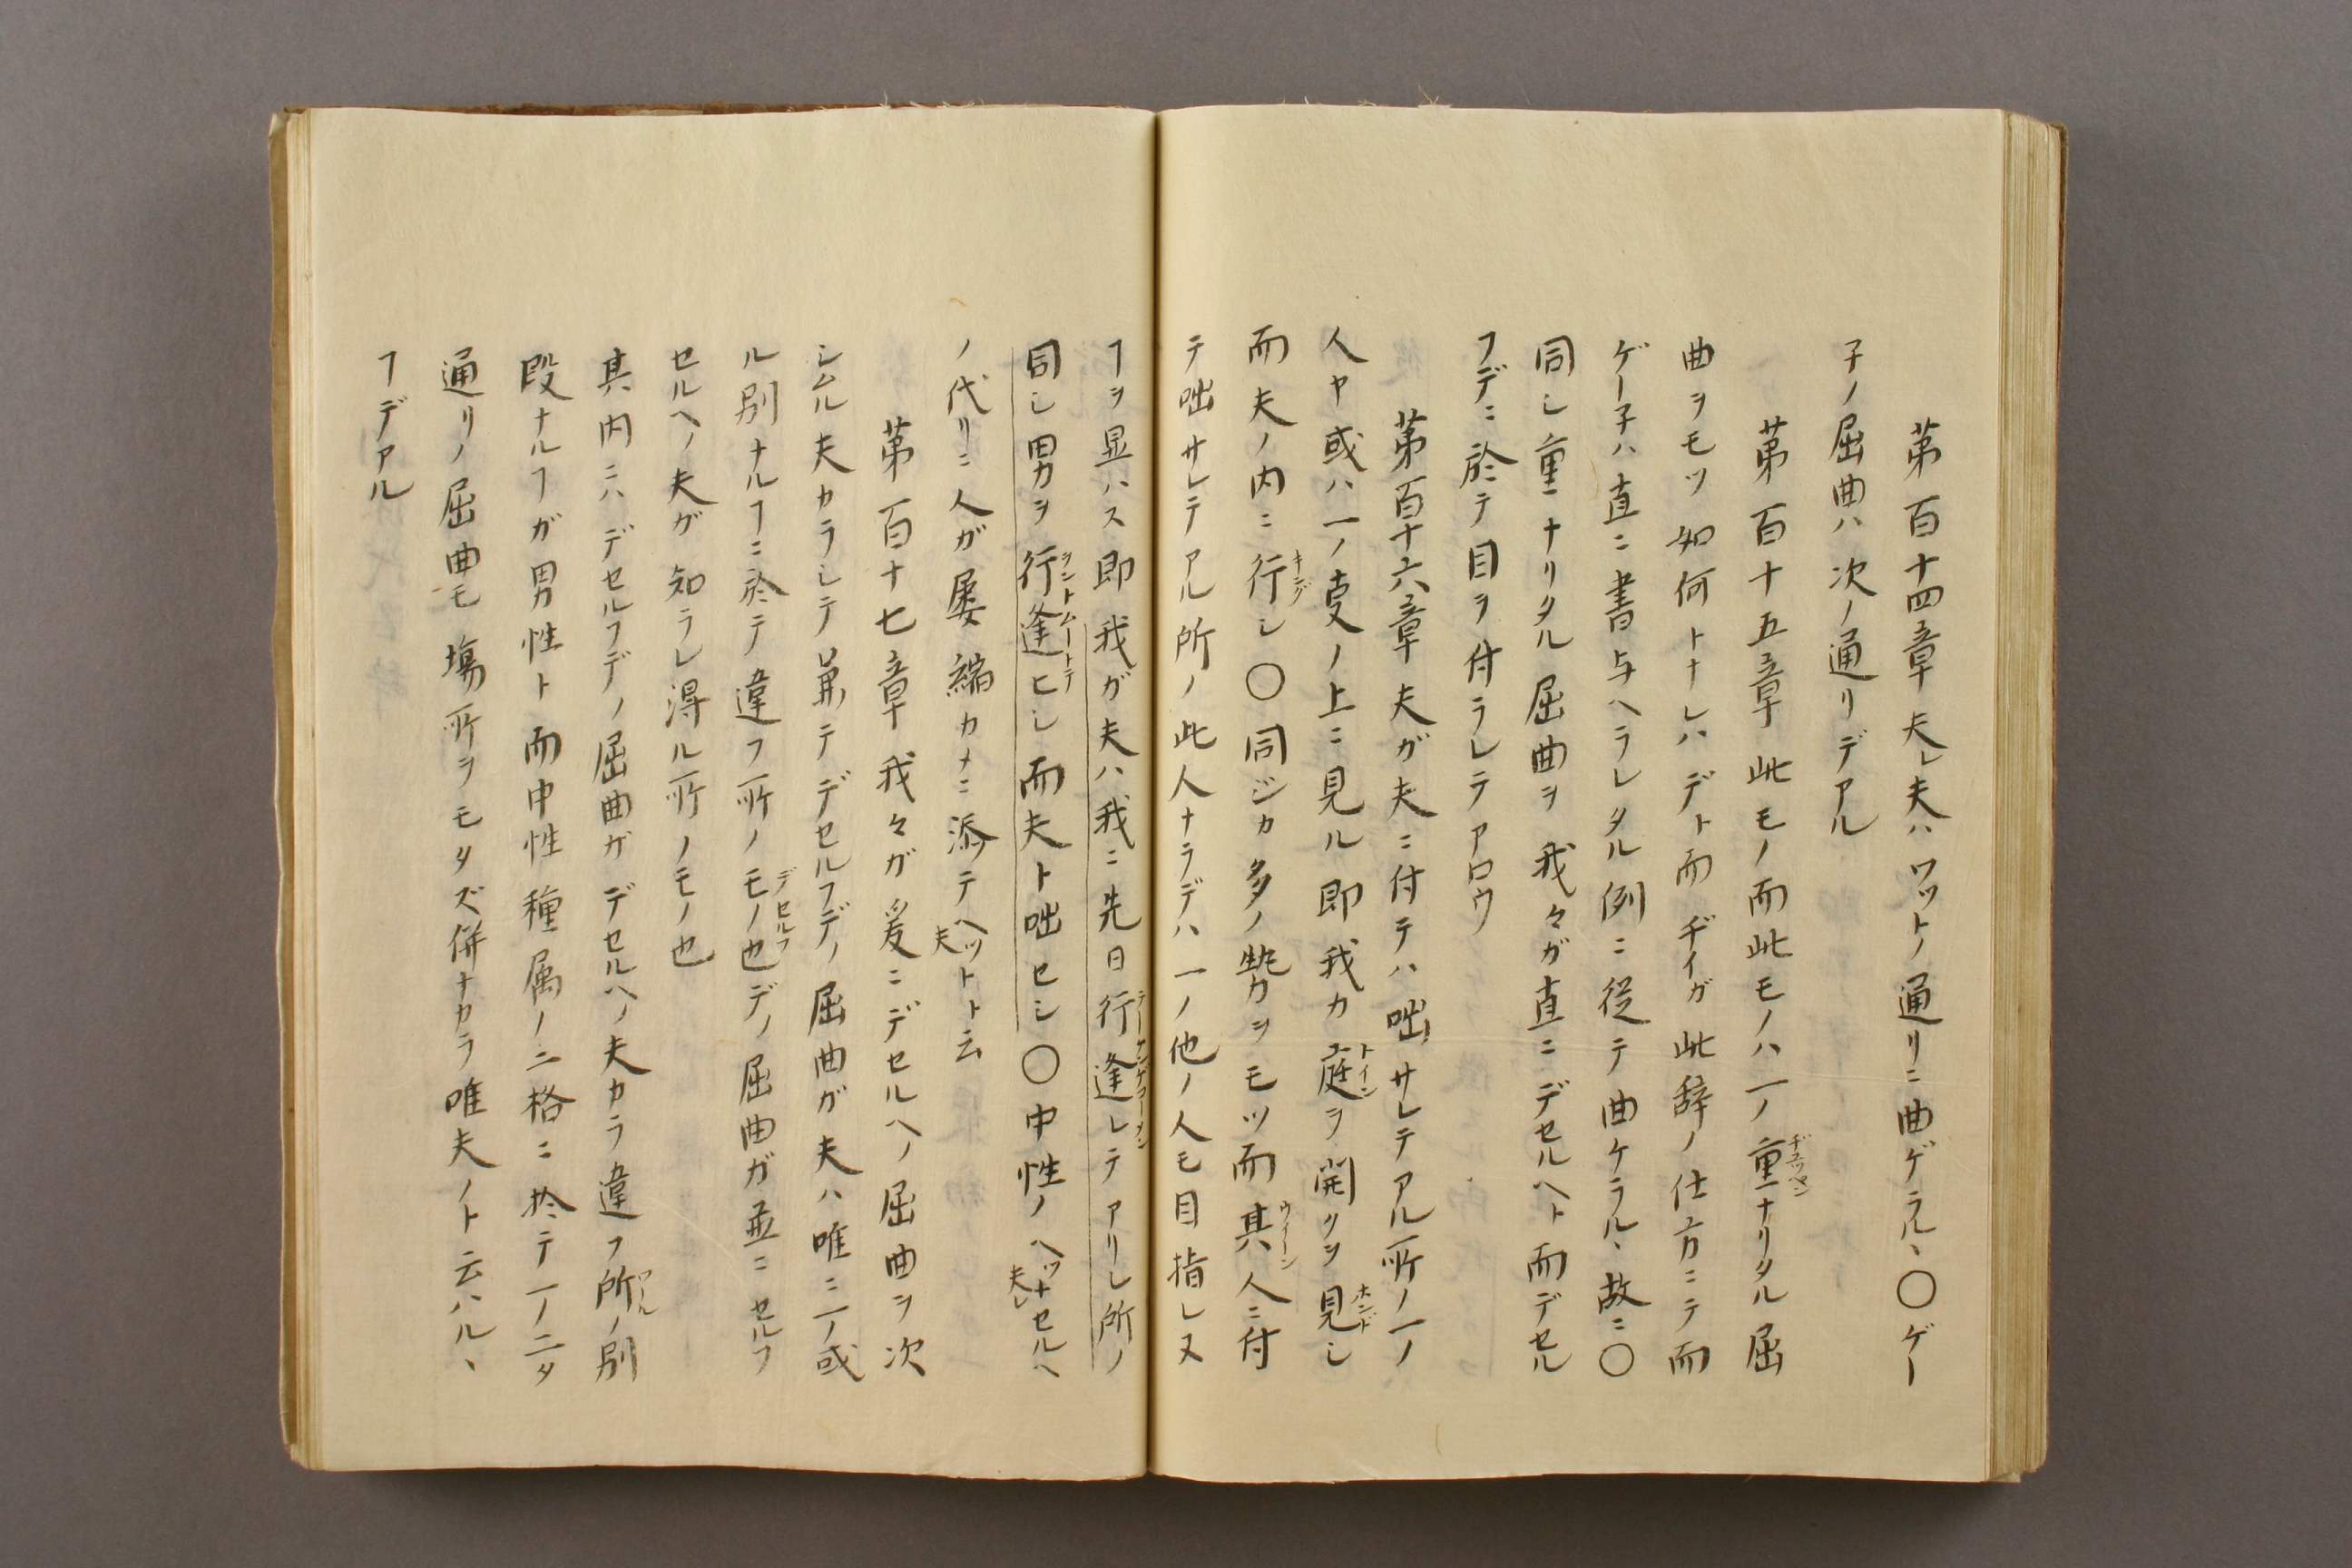 第百十四章夫レ夫ハワットノ通リニ曲ゲラルヽ〇ゲー
子ノ屈曲ハ次ノ通リデアル
第百十五章此モノ而此モノハ一ノ重ナリタル屈
ヂュッペン
曲ヲモツ如何トナレハデト而ヂイガ此辞ノ仕方ニテ而
ゲー子ハ直ニ書与ヘラレタル例ニ従テ曲ケラルヽ故ニ〇
同し重ナリタル屈曲ヲ我々ガ直ニデセルヘト而デセル
フデニ於テ目ヲ付ラレテアロウ
第百十六章夫ガ夫ニ付テハ咄サレテアル所ノ一ノ
人ヤ或ハ一ノ支ノ上ニ見ル即我カ庭ヲ開クヲ見し
トイン
ホンド
而夫ノ内ニ行し〇同ジカ多ノ勢ヲモツ而其人ニ付
キング
ウイーン
テ咄サレテアル所ノ此人ナラデハ一ノ他ノ人モ目指レ又
ヿヲ显ハス即我ガ夫ハ我ニ先日行逢レテアリし所ノ
同し男ヲ行逢ヒし而夫ト咄セシ〇中性ノヘッナセルヘ
ヲントムートテ
夫レ
ノ代リニ人ガ屡縮カメニ添テヘットト云
夫
第百十七章我々ガ爰ニデセルヘノ屈曲ヲ次
シムル夫カラシテ第テデセルフデノ屈曲ガ夫ハ唯ニ一ノ或
ル別ナルヿニ於テ違フ所ノモノ也デノ屈曲ガ並ニセルフ
デセルフ
セルヘノ夫ガ知ラレ得ル所ノモノ也
其内ニハデセルフデノ屈曲ガデセルヘノ夫カラ違フ所ノ別
ワール
段ナルヿガ男性ト而中性種属ノ二格ニ於テ一ノ二タ
通リノ屈曲モ塲所ヲモタズ併ナカラ唯夫ノト云ハルヽ
ヿデアル